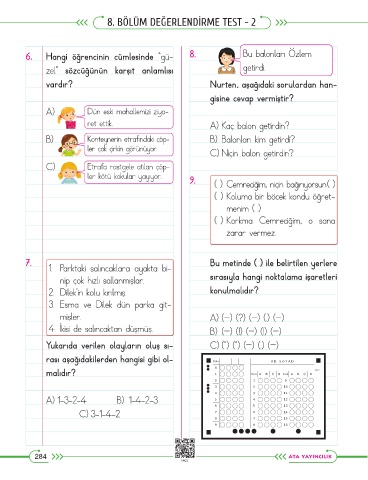 8. BÖLÜM DEĞERLENDİRME TEST - 2
6. Hangi öğrencinin cümlesinde "gü-
zel" sözcüğünün karşıt anlamlısı
vardır?
A) Dün eski mahallemizi ziya-
ret ettik.
B) Konteynerin etrafındaki çöp-
ler çok çirkin görünüyor.
C) Etrafa rastgele atılan çöp-
ler kötü kokular yayıyor.
7. 1. Parktaki salıncaklara ayakta bi-
nip çok hızlı sallanmışlar.
2. Dilek'in kolu kırılmış.
3. Esma ve Dilek dün parka git-
mişler.
4. İkisi de salıncaktan düşmüş.
Yukarıda verilen olayların oluş sı-
rası aşağıdakilerden hangisi gibi ol-
malıdır?
A) 1-3-2-4 B) 1-4-2-3
C) 3-1-4-2
8. Bu balonları Özlem
getirdi.
Nurten, aşağıdaki sorulardan han-
gisine cevap vermiştir?
A) Kaç balon getirdin?
B) Balonları kim getirdi?
C) Niçin balon getirdin?
9. ( ) Cemreciğim, niçin bağırıyorsun( )
( ) Koluma bir böcek kondu öğret-
menim ( )
( ) Korkma Cemreciğim, o sana
zarar vermez.
Bu metinde ( ) ile belirtilen yerlere
sırasıyla hangi noktalama işaretleri
konulmalıdır?
A) (-) (?) (-) (.) (-)
B) (-) (!) (-) (!) (-)
C) (") (") (-) (.) (-)
AD SOYAD
284
ATA YAYINCILIK